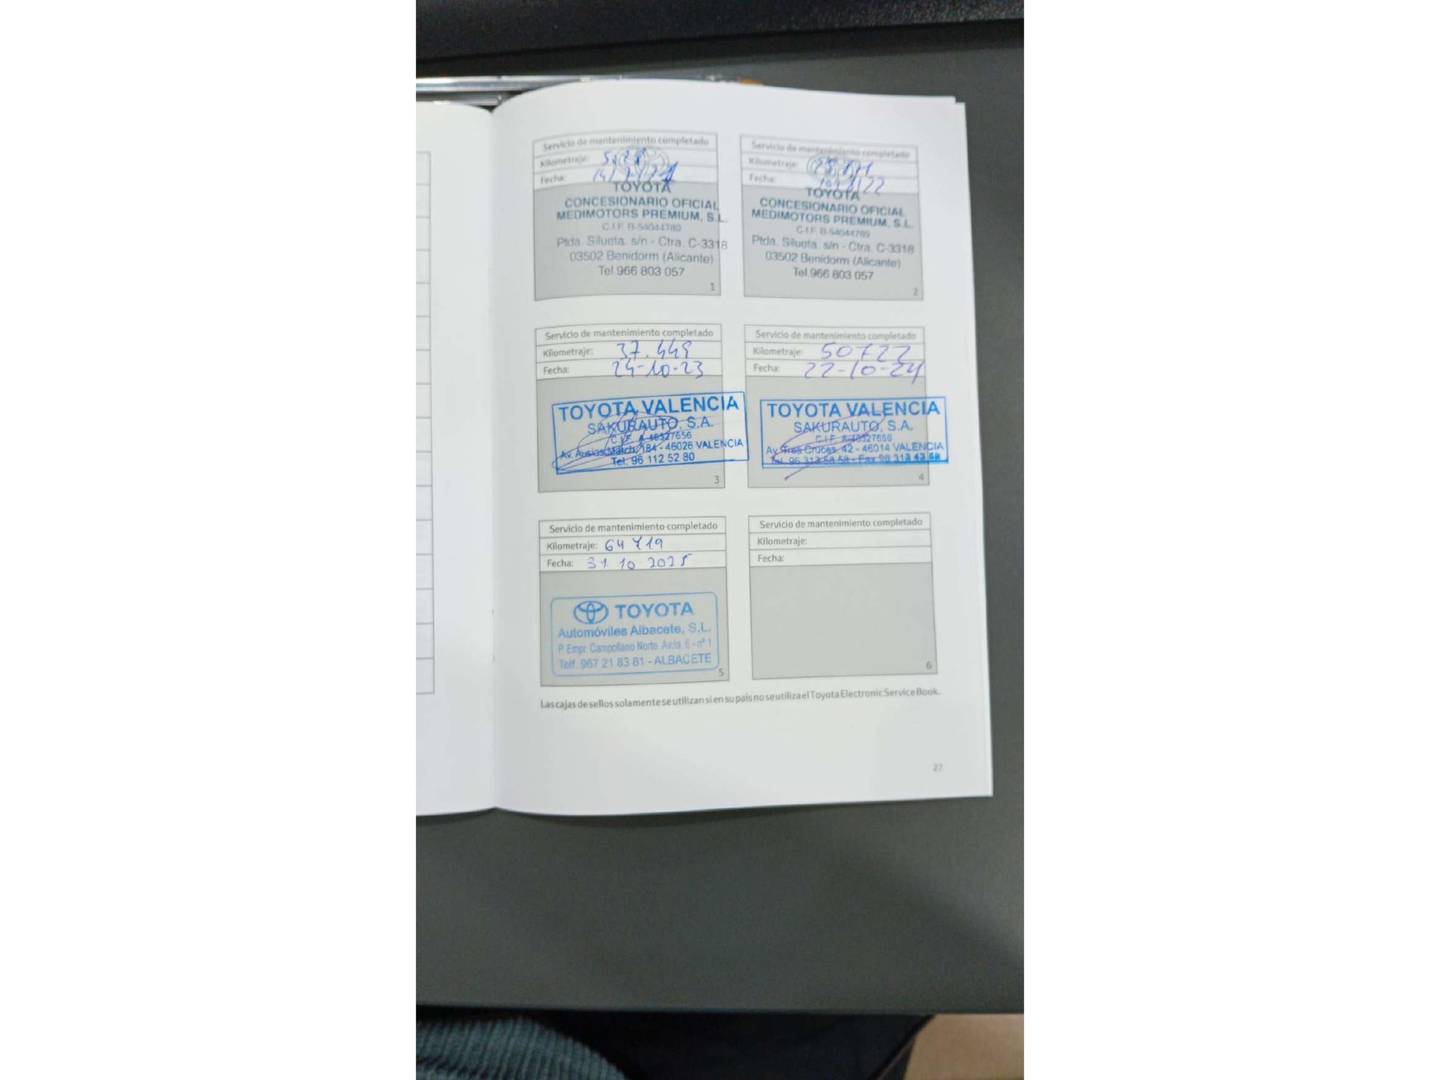 Servicio de mantenimiento completado
Kilometraje:
Fecha:
TOYOTA
CONCESIONARIO OFICIAL
MEDIMOTORS PREMIUM, S.L.
C.I.F. B-54044780
Ptda. Silueta. s/n - Ctra. C-3318
03502 Benidorm (Alicante)
Tel.966 803 057
1
Servicio de mantenimiento completado
Kilometraje:
Fecha:
TOYOTA
CONCESIONARIO OFICIAL
MEDIMOTORS PREMIUM, S.L.
C.I.F. B-54044780
Ptda. Silueta. s/n - Ctra. C-3318
03502 Benidorm (Alicante)
Tel.966 803 057
2
Servicio de mantenimiento completado
Kilometraje: 37.449
Fecha: 24-10-23
TOYOTA VALENCIA
SAKURAUTO, S.A.
C.I.F. A-46327656
Av. Ausias March, 184 - 46026 VALENCIA
Tel. 96 112 52 80
3
Servicio de mantenimiento completado
Kilometraje: 50722
Fecha: 22-10-24
TOYOTA VALENCIA
SAKURAUTO, S.A.
C.I.F. A-46327656
Av. Tres Cruces, 42 - 46014 VALENCIA
Tel. 96 313
4
Servicio de mantenimiento completado
Kilometraje: 64719
Fecha: 31 10 2025
TOYOTA
Automóviles Albacete, S.L.
P. Empr. Campollano Norte. Avda. 6 - nº 1
Telf. 967 21 83 81 - ALBACETE
5
Servicio de mantenimiento completado
Kilometraje:
Fecha:
6
Las cajas de sellos solamente se utilizan si en su país no se utiliza el Toyota Electronic Service Book.
27